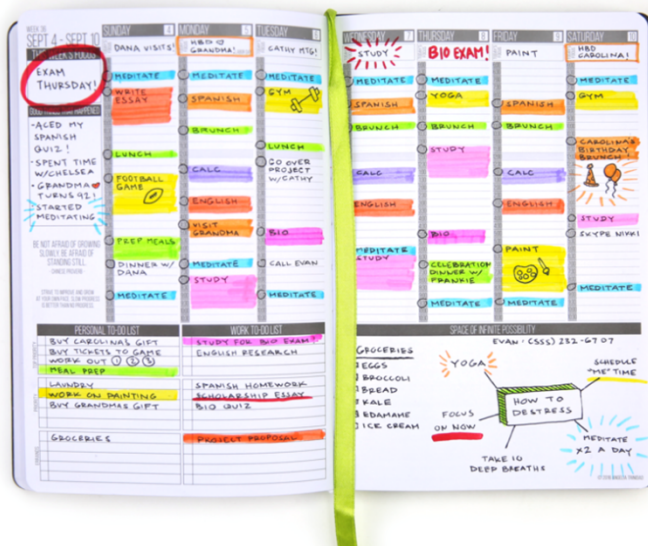 WEEK 36
SEPT 4 - SEPT 10
THIS WEEK'S FOCUS
EXAM
THURSDAY!
GOOD THINGS THAT HAPPENED
-ACED MY
SPANISH
QUIZ!
-SPENT TIME
W/CHELSEA
-GRANDMA
TURNS 92!
STARTED
MEDITATING
BE NOT AFRAID OF GROWING
SLOWLY, BE AFRAID OF
STANDING STILL.
SUNDAY 4
DANA VISITS!
MEDITATE
WRITE
ESSAY
LUNCH
FOOTBALL
GAME
PREP MEALS
DINNER W/
DANA
MEDITATE
MONDAY 5
HBD
GRANDMA!
MEDITATE
SPANISH
BRUNCH
CALC
ENGLISH
VISIT
GRANDMA
MEDITATE
STUDY
TUESDAY
CATHY MTG!
MEDITATE
GYM
LUNCH
GO OVER
PROJECT
W/CATHY
BIO
CALL EVAN
MEDITATE
WEDNESDAY 7
STUDY
MEDITATE
SPANISH
BRUNCH
CALC
ENGLISH
MEDITATE
STUDY
THURSDAY 8
BIO EXAM!
MEDITATE
YOGA
BRUNCH
STUDY
BIO
CELEBRATION
DINNER W/
FRANKIE
MEDITATE
FRIDAY 9
PAINT
MEDITATE
SPANISH
BRUNCH
CALC
ENGLISH
PAINT
MEDITATE
SATURDAY 10
HBD
CAROLINA!
MEDITATE
GYM
CAROLINA'S
BIRTHDAY
BRUNCH!
STUDY
SKYPE NIKKI
MEDITATE
PERSONAL TO-DO LIST
BUY CAROLINA'S GIFT
BUY TICKETS TO GAME
WORK OUT 1 2 3
MEAL PREP
LAUNDRY
WORK ON PAINTING
BUY GRANDMAS GIFT
GROCERIES
WORK TO-DO LIST
STUDY FOR BIO EXAM!
ENGLISH RESEARCH
SPANISH HOMEWORK
SCHOLARSHIP ESSAY
BIO QUIZ
PROJECT PROPOSAL
SPACE OF INFINITE POSSIBILITY
EVAN - (555) 232-6707
GROCERIES
EGGS
BROCCOLI
BREAD
KALE
EDAMAME
ICE CREAM
YOGA
SCHEDULE
"ME" TIME
HOW TO
DESTRESS
FOCUS
ON NOW
MEDITATE
X2 A DAY
TAKE 10
DEEP BREATHS